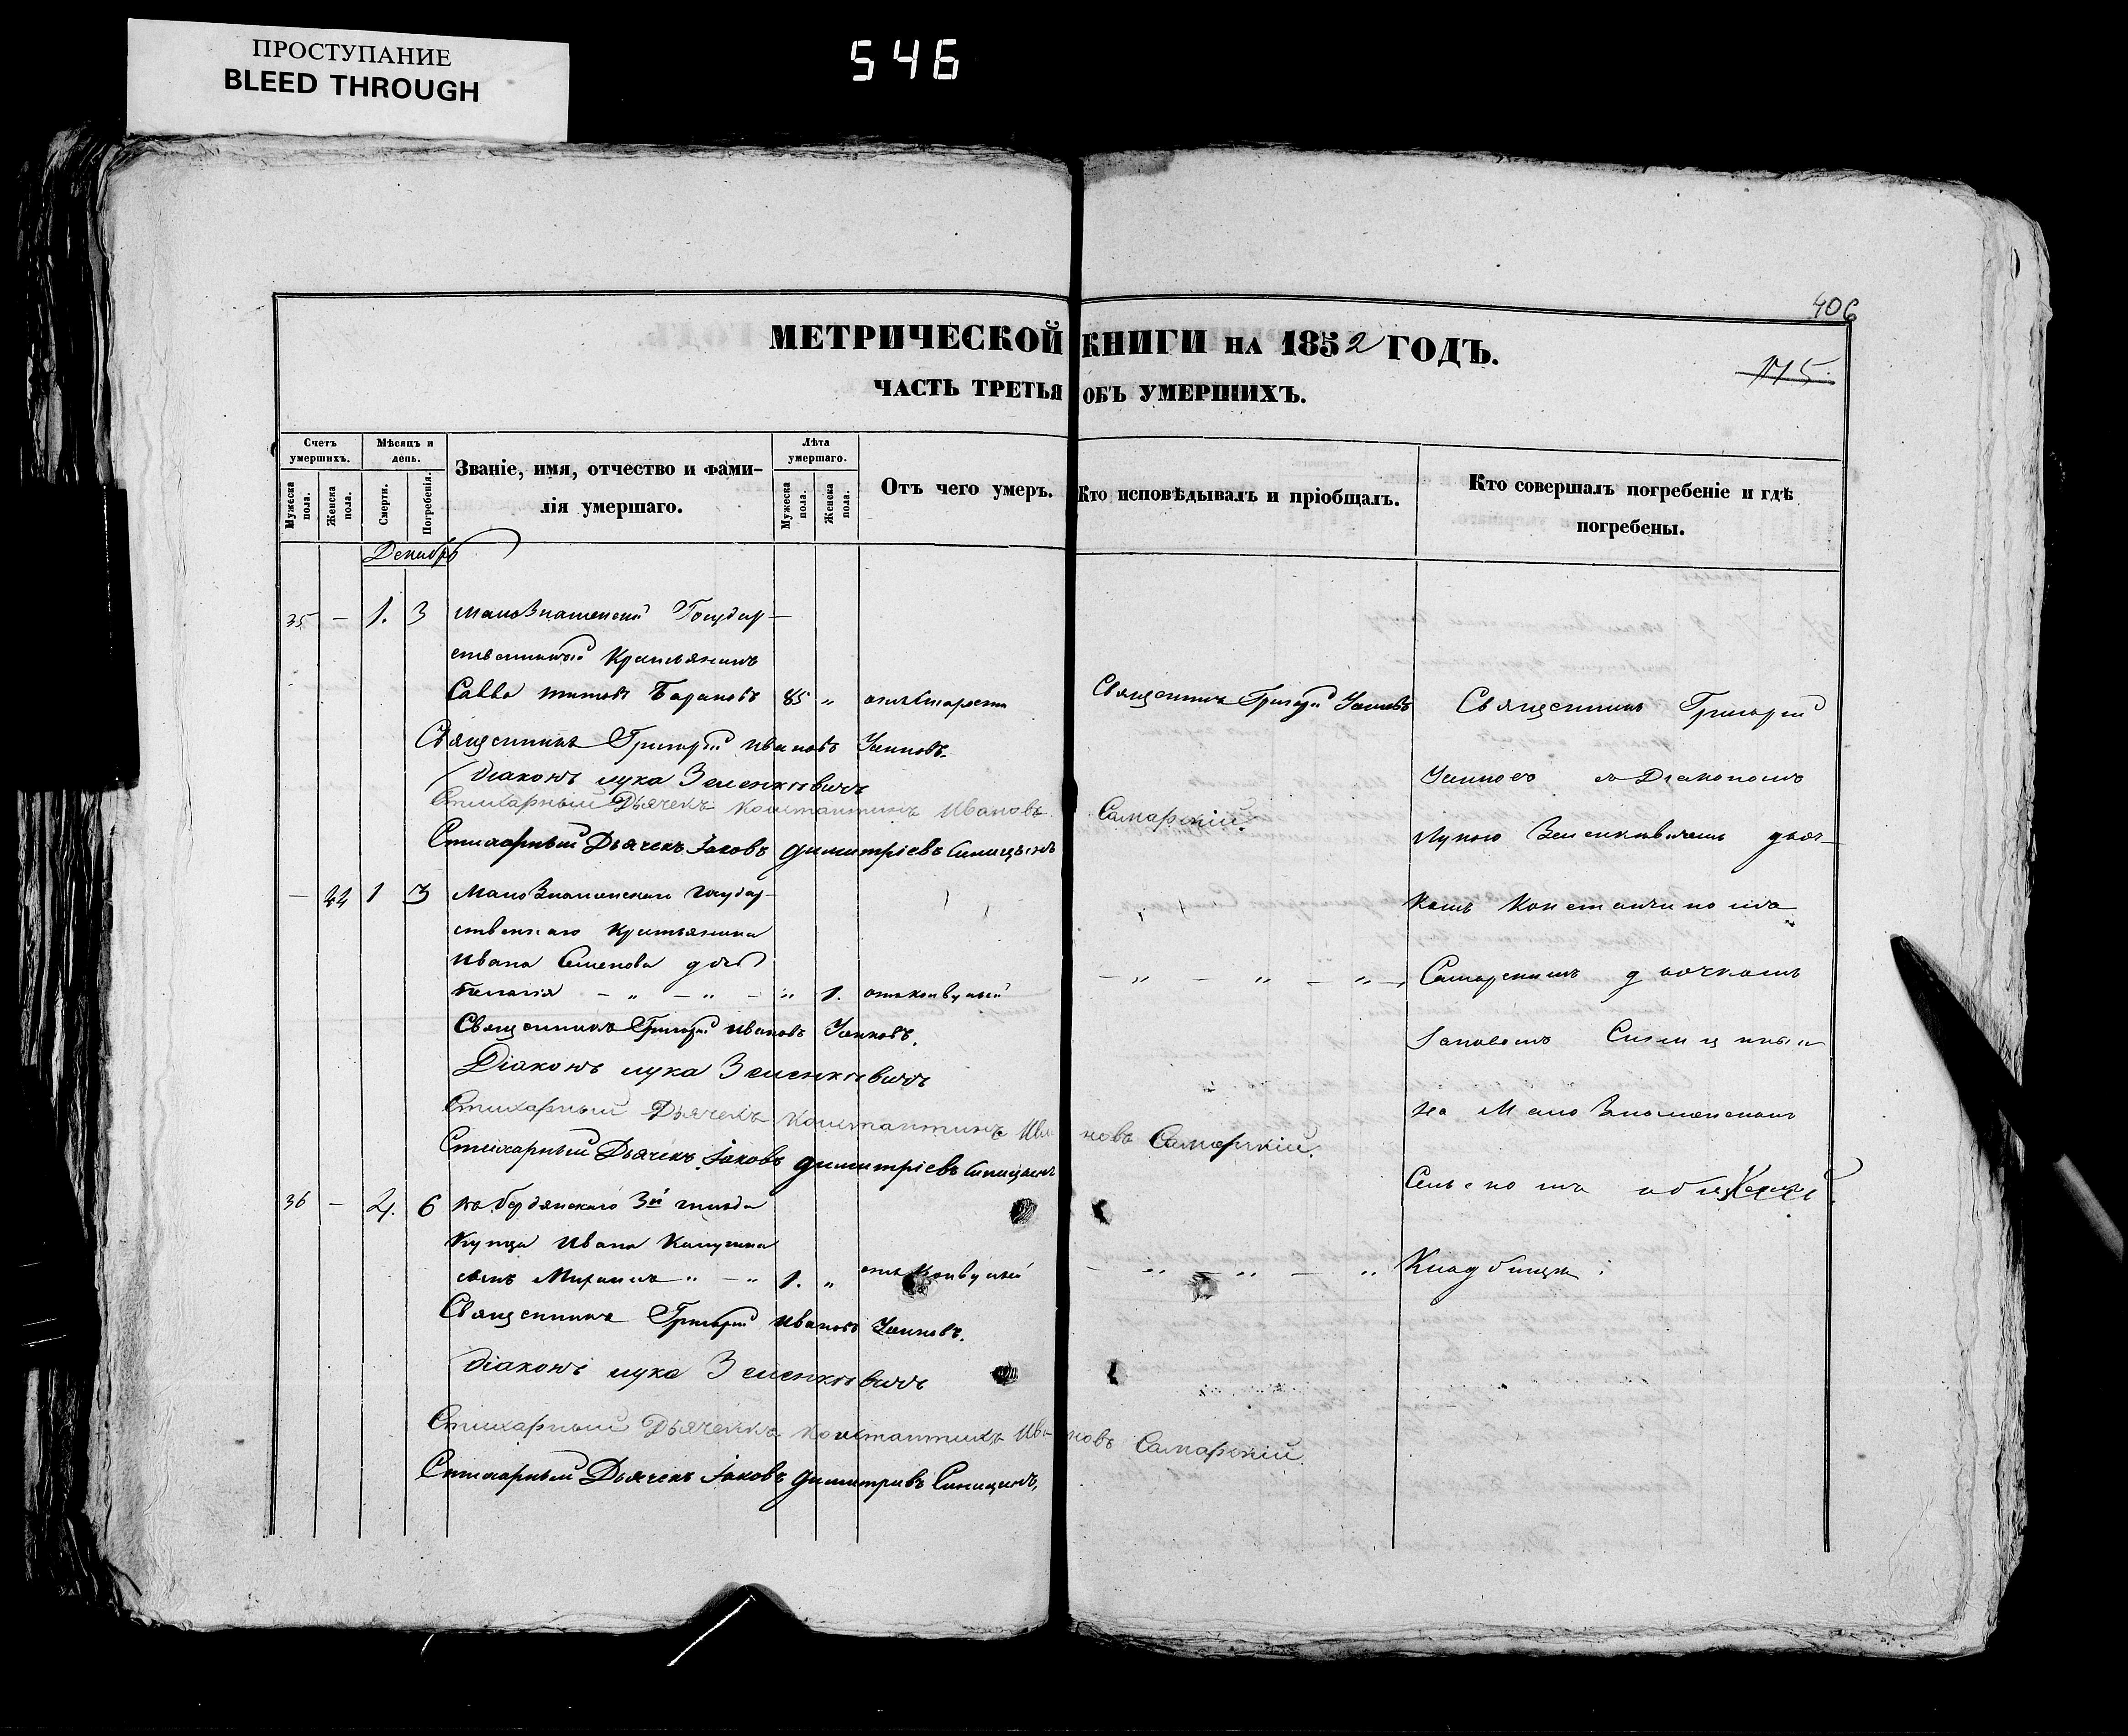 ПРОСТУПАНИЕ
BLEED THROUGH
546
406
МЕТРИЧЕСКОЙ КНИГИ НА 1852 ГОДЪ.
175.
ЧАСТЬ ТРЕТЬЯ ОБЪ УМЕРШИХЪ.
Счетъ умершихъ.
Мужеска пола.
Женска пола.
Мѣсяцъ и день.
Смерти.
Погребенія.
Званіе, имя, отчество и фами-
лія умершаго.
Лѣта умершаго.
Мужеска пола.
Женска пола.
Отъ чего умеръ.
Кто исповѣдывалъ и пріобщалъ.
Кто совершалъ погребеніе и гдѣ
погребены.
Декабрь
35 — 1. 3 МалоЗнаменскій Государ—
ственный Крестьянинъ
Савва Титовъ Барановъ 85 " отъ старости Священникъ Григорій Священникъ Григорій
Священникъ Григорій Ивановъ
Діаконъ Лука Зеленкевичъ съ Діакономъ
Стихарный Дьячекъ Константинъ Ивановъ Самарскій.
Стихарный Дьячекъ Іаковъ Димитріевъ Синицынъ Лукою Зеленкевичемъ дьяч—
— 44 1 3 МалоЗнаменскаго Государ—
ственнаго Крестьянина комъ Константиномъ
Ивана Семенова дочь
Пелагія — " — " — " 1. отъ конвульсій — " — " — " — Самарскимъ дьячкомъ
Священникъ Григорій Ивановъ
Іаковомъ Синицинымъ
Діаконъ Лука Зеленкевичъ
Стихарный Дьячекъ Константинъ Ивановъ Самарскій.
на МалоЗнаменскомъ
Стихарный Дьячекъ Іаковъ Димитріевъ Синицынъ
36 — 4. 6 Бердянскаго 3й гильдіи
Сельскомъ
Купца Ивана
сынъ " — " 1. " отъ конвульсій — " — " — " Кладбищѣ.
Священникъ Григорій Ивановъ
Діаконъ Лука Зеленкевичъ
Стихарный Дьячекъ Константинъ Ивановъ Самарскій.
Стихарный Дьячекъ Іаковъ Димитріевъ Синицынъ,